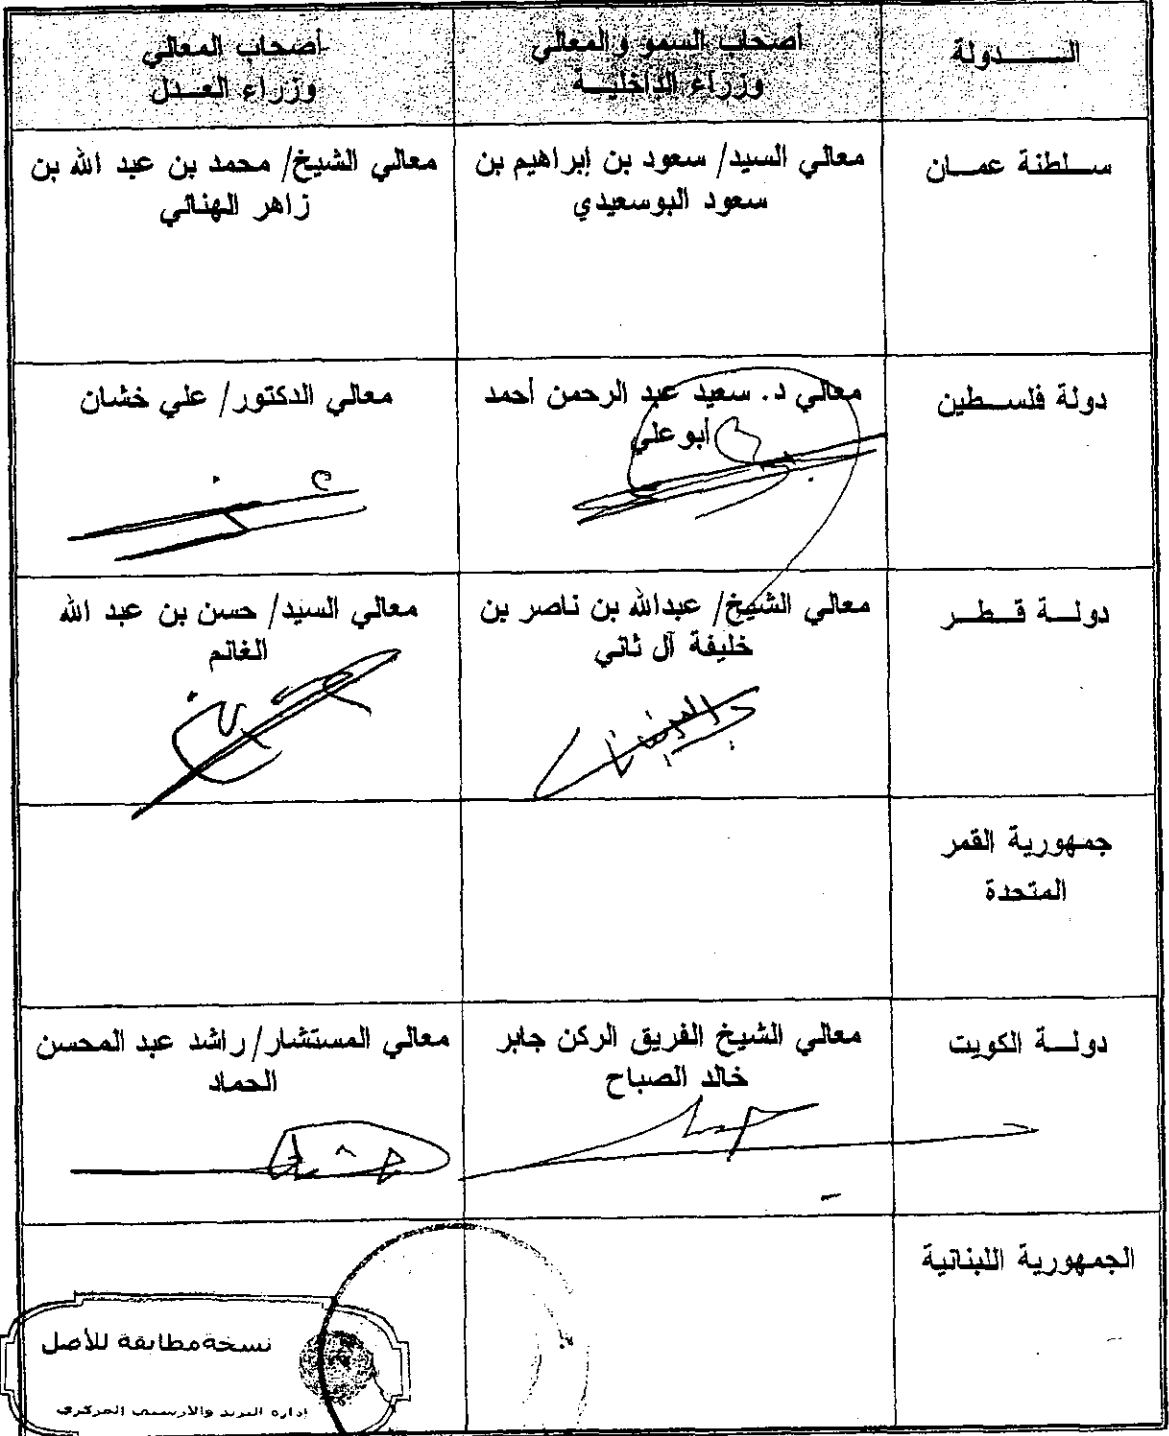 الســـــدولة
أصحاب السمو والمعالي
وزراء الداخليـــة
أصحاب المعالي
وزراء العـــدل
ســـلطنة عمـــان
معالي السيد/ سعود بن إبراهيم بن
سعود البوسعيدي
معالي الشيخ/ محمد بن عبد الله بن
زاهر الهنائي
دولة فلســطين
معالي د. سعيد عبد الرحمن أحمد
أبو علي
معالي الدكتور/ علي خشان
دولـــة قـــطـــر
معالي الشيخ/ عبدالله بن ناصر بن
خليفة آل ثاني
معالي السيد/ حسن بن عبد الله
الغانم
جمهورية القمر
المتحدة
دولـــة الكويت
معالي الشيخ الفريق الركن جابر
خالد الصباح
معالي المستشار/ راشد عبد المحسن
الحماد
الجمهورية اللبنانية
نسخة مطابقة للأصل
إدارة البريد والأرشيف المركزي